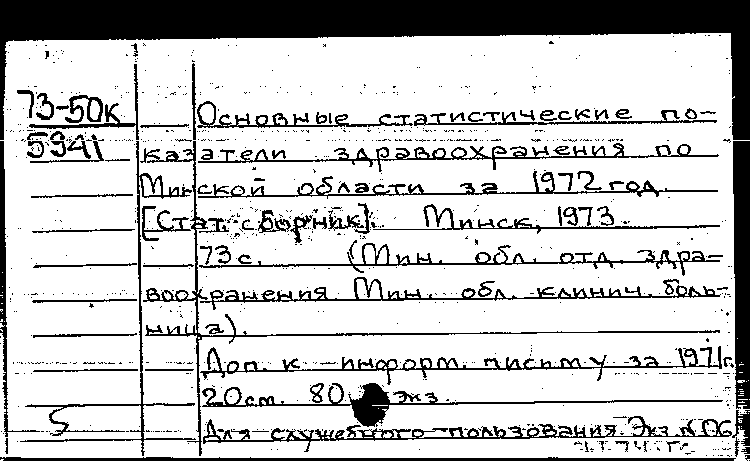 73-50к
5941
Основные статистические по-
казатели здравоохранения по
Минской области за 1972 год.
[Стат. сборник]. Минск, 1973.
73 с. (Мин. обл. отд. здра=
воохранения Мин. обл. клинич. боль-
ница).
Доп. к информ. письму за 1971г.
20 см. 80 экз.
5
Для служебного пользования. Экз. №06